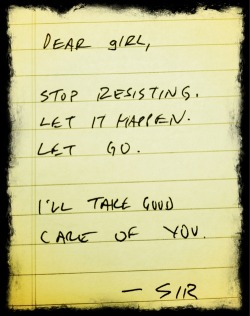 DEAR gIRL,
STOP RESISTING.
LET IT HAPPEN.
LET GO.
I'LL TAKE GOOD
CARE OF YOU.
— SIR